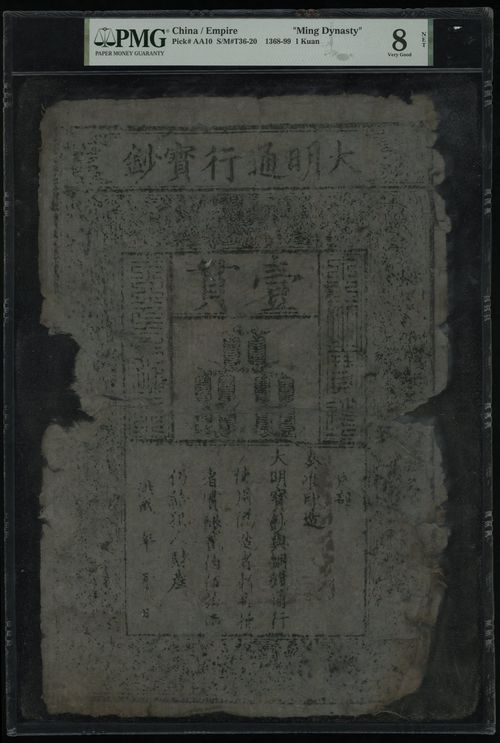 PMG
PAPER MONEY GUARANTY
China / Empire "Ming Dynasty"
Pick# AA10 S/M#T36-20 1368-99 1 Kuan
8 NET
Very Good
大明通行寶鈔
壹貫
戶部
奏准印造
大明寶鈔與銅錢通行
使用偽造者斬告捕
者賞銀貳伯伍拾兩
仍給犯人財產
洪武 年 月 日